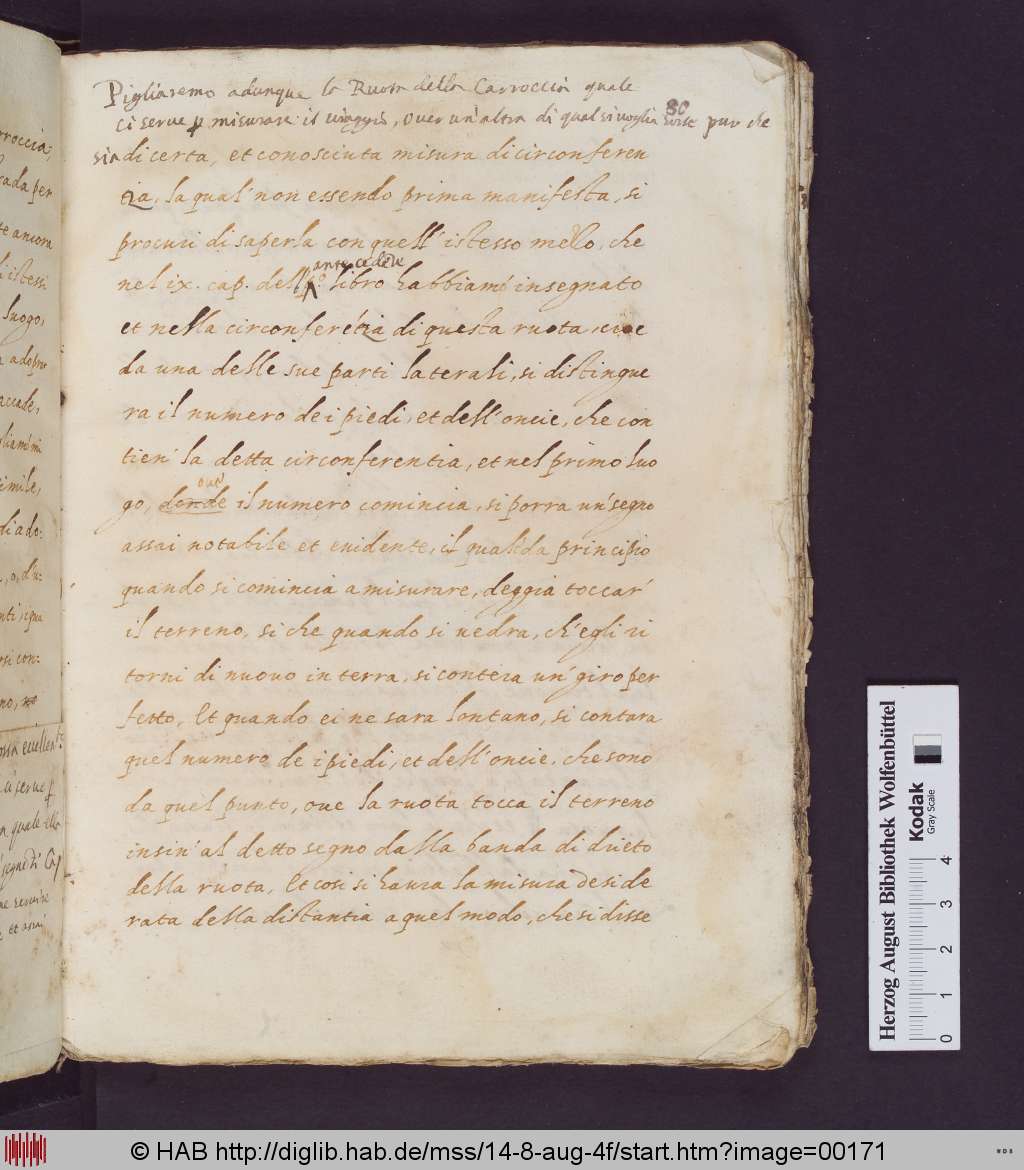 Pigliaremo adunque la Ruota della Carroccia quale
80
ci serue p misurare il uiaggio, ouer un'altra di qual si uoglia sorte pur che
sia di certa, et conosciuta misura di circonferen
tia, la qual' non essendo prima manifesta, si
procuri di saperla con quell' istesso modo, che
antecedete
nel ix. cap. dell libro habbiamo insegnato
et nella circonferétia di questa ruota, cioe
da una delle sue parti laterali, si distingue
ra il numero de i piedi, et dell' oncie, che con
tien' la detta circonferentia, et nel primo luo
go, donde il numero comincia, si porra un' segno
assai notabile et euidente, il qual' da principio
quando si comincia a misurare, deggia toccar'
il terreno, si che quando si uedra, ch' egli ri
torni di nuouo in terra, si contera un' giro per
fetto, Et quando ei ne sara lontano, si contara
quel numero de i piedi, et dell' oncie, che sono
da quel punto, oue la ruota tocca il terreno
insin' al detto segno dalla banda di drieto
della ruota, Et cosi si haura la misura deside
rata della distantia a quel modo, che si disse
rroccia;
cada per
te ancora
istessi
luogo,
adopra
accade,
imile,
di ado:
si con:
no,
a quale
Herzog August Bibliothek Wolfenbüttel
Kodak
Gray Scale
0 1 2 3 4
© HAB http://diglib.hab.de/mss/14-8-aug-4f/start.htm?image=00171